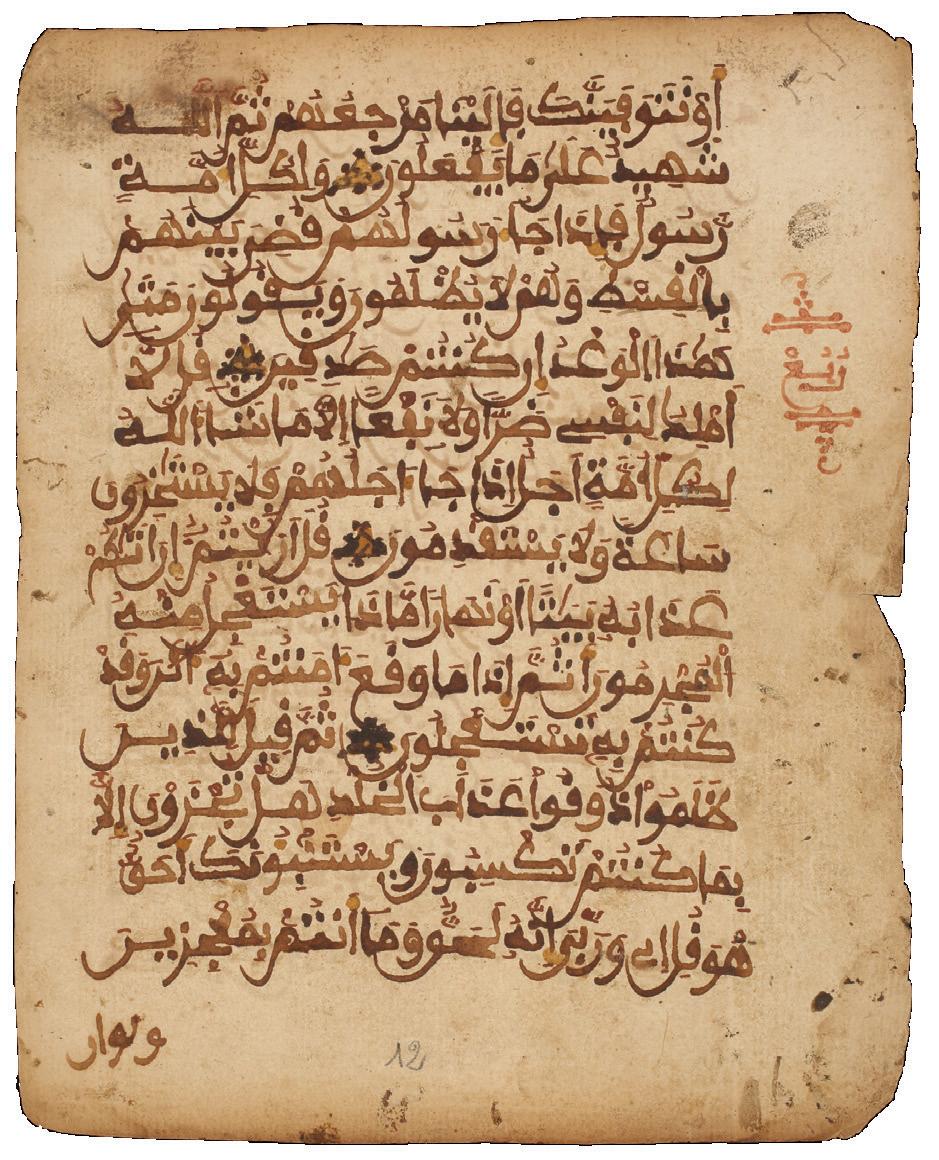 أَوْ نَتَوَفَّيَنَّكَ فَإِلَيْنَا مَرْجِعُهُمْ ثُمَّ اللَّهُ
شَهِيدٌ عَلَىٰ مَا يَفْعَلُونَ وَلِكُلِّ أُمَّةٍ
رَّسُولٌ فَإِذَا جَاءَ رَسُولُهُمْ قُضِيَ بَيْنَهُم
بِالْقِسْطِ وَهُمْ لَا يُظْلَمُونَ وَيَقُولُونَ مَتَىٰ
هَٰذَا الْوَعْدُ إِن كُنتُمْ صَٰدِقِينَ قُل لَّا
أَمْلِكُ لِنَفْسِي ضَرًّا وَلَا نَفْعًا إِلَّا مَا شَاءَ اللَّهُ
لِكُلِّ أُمَّةٍ أَجَلٌ إِذَا جَاءَ اجَلُهُمْ فَلَا يَسْتَخِرُونَ
سَاعَةً وَلَا يَسْتَقْدِمُونَ قُلْ أَرَٰيْتُمْ إِنْ أَتَىٰكُمْ
عَذَابُهُ بَيَٰتًا أَوْ نَهَارًا مَّاذَا يَسْتَعْجِلُ مِنْهُ
الْمُجْرِمُونَ أَثُمَّ إِذَا مَا وَقَعَ ءَامَنتُم بِهِ ءَالَٰنَ وَقَدْ
كُنتُم بِهِ تَسْتَعْجِلُونَ ثُمَّ قِيلَ لِلَّذِينَ
ظَلَمُوا ذُوقُوا عَذَابَ الْخُلْدِ هَلْ تُجْزَوْنَ إِلَّا
بِمَا كُنتُمْ تَكْسِبُونَ وَيَسْتَنبُونَكَ أَحَقٌّ
هُوَ قُلْ إِي وَرَبِّيَ إِنَّهُ لَحَقٌّ وَمَا أَنتُم بِمُعْجِزِينَ
ولو ان
12